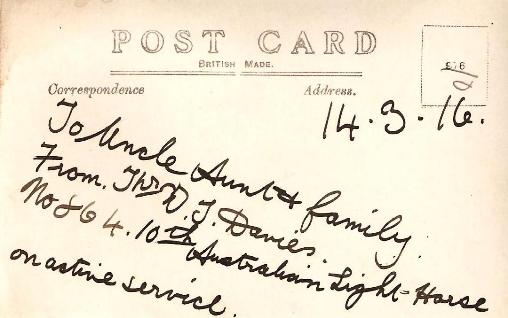 POST CARD
BRITISH MADE.
Correspondence Address.
14.3.16.
To Uncle Aunt & family.
From. Thos D J. Davies.
No 864. 10th Australian Light-Horse
on active service.